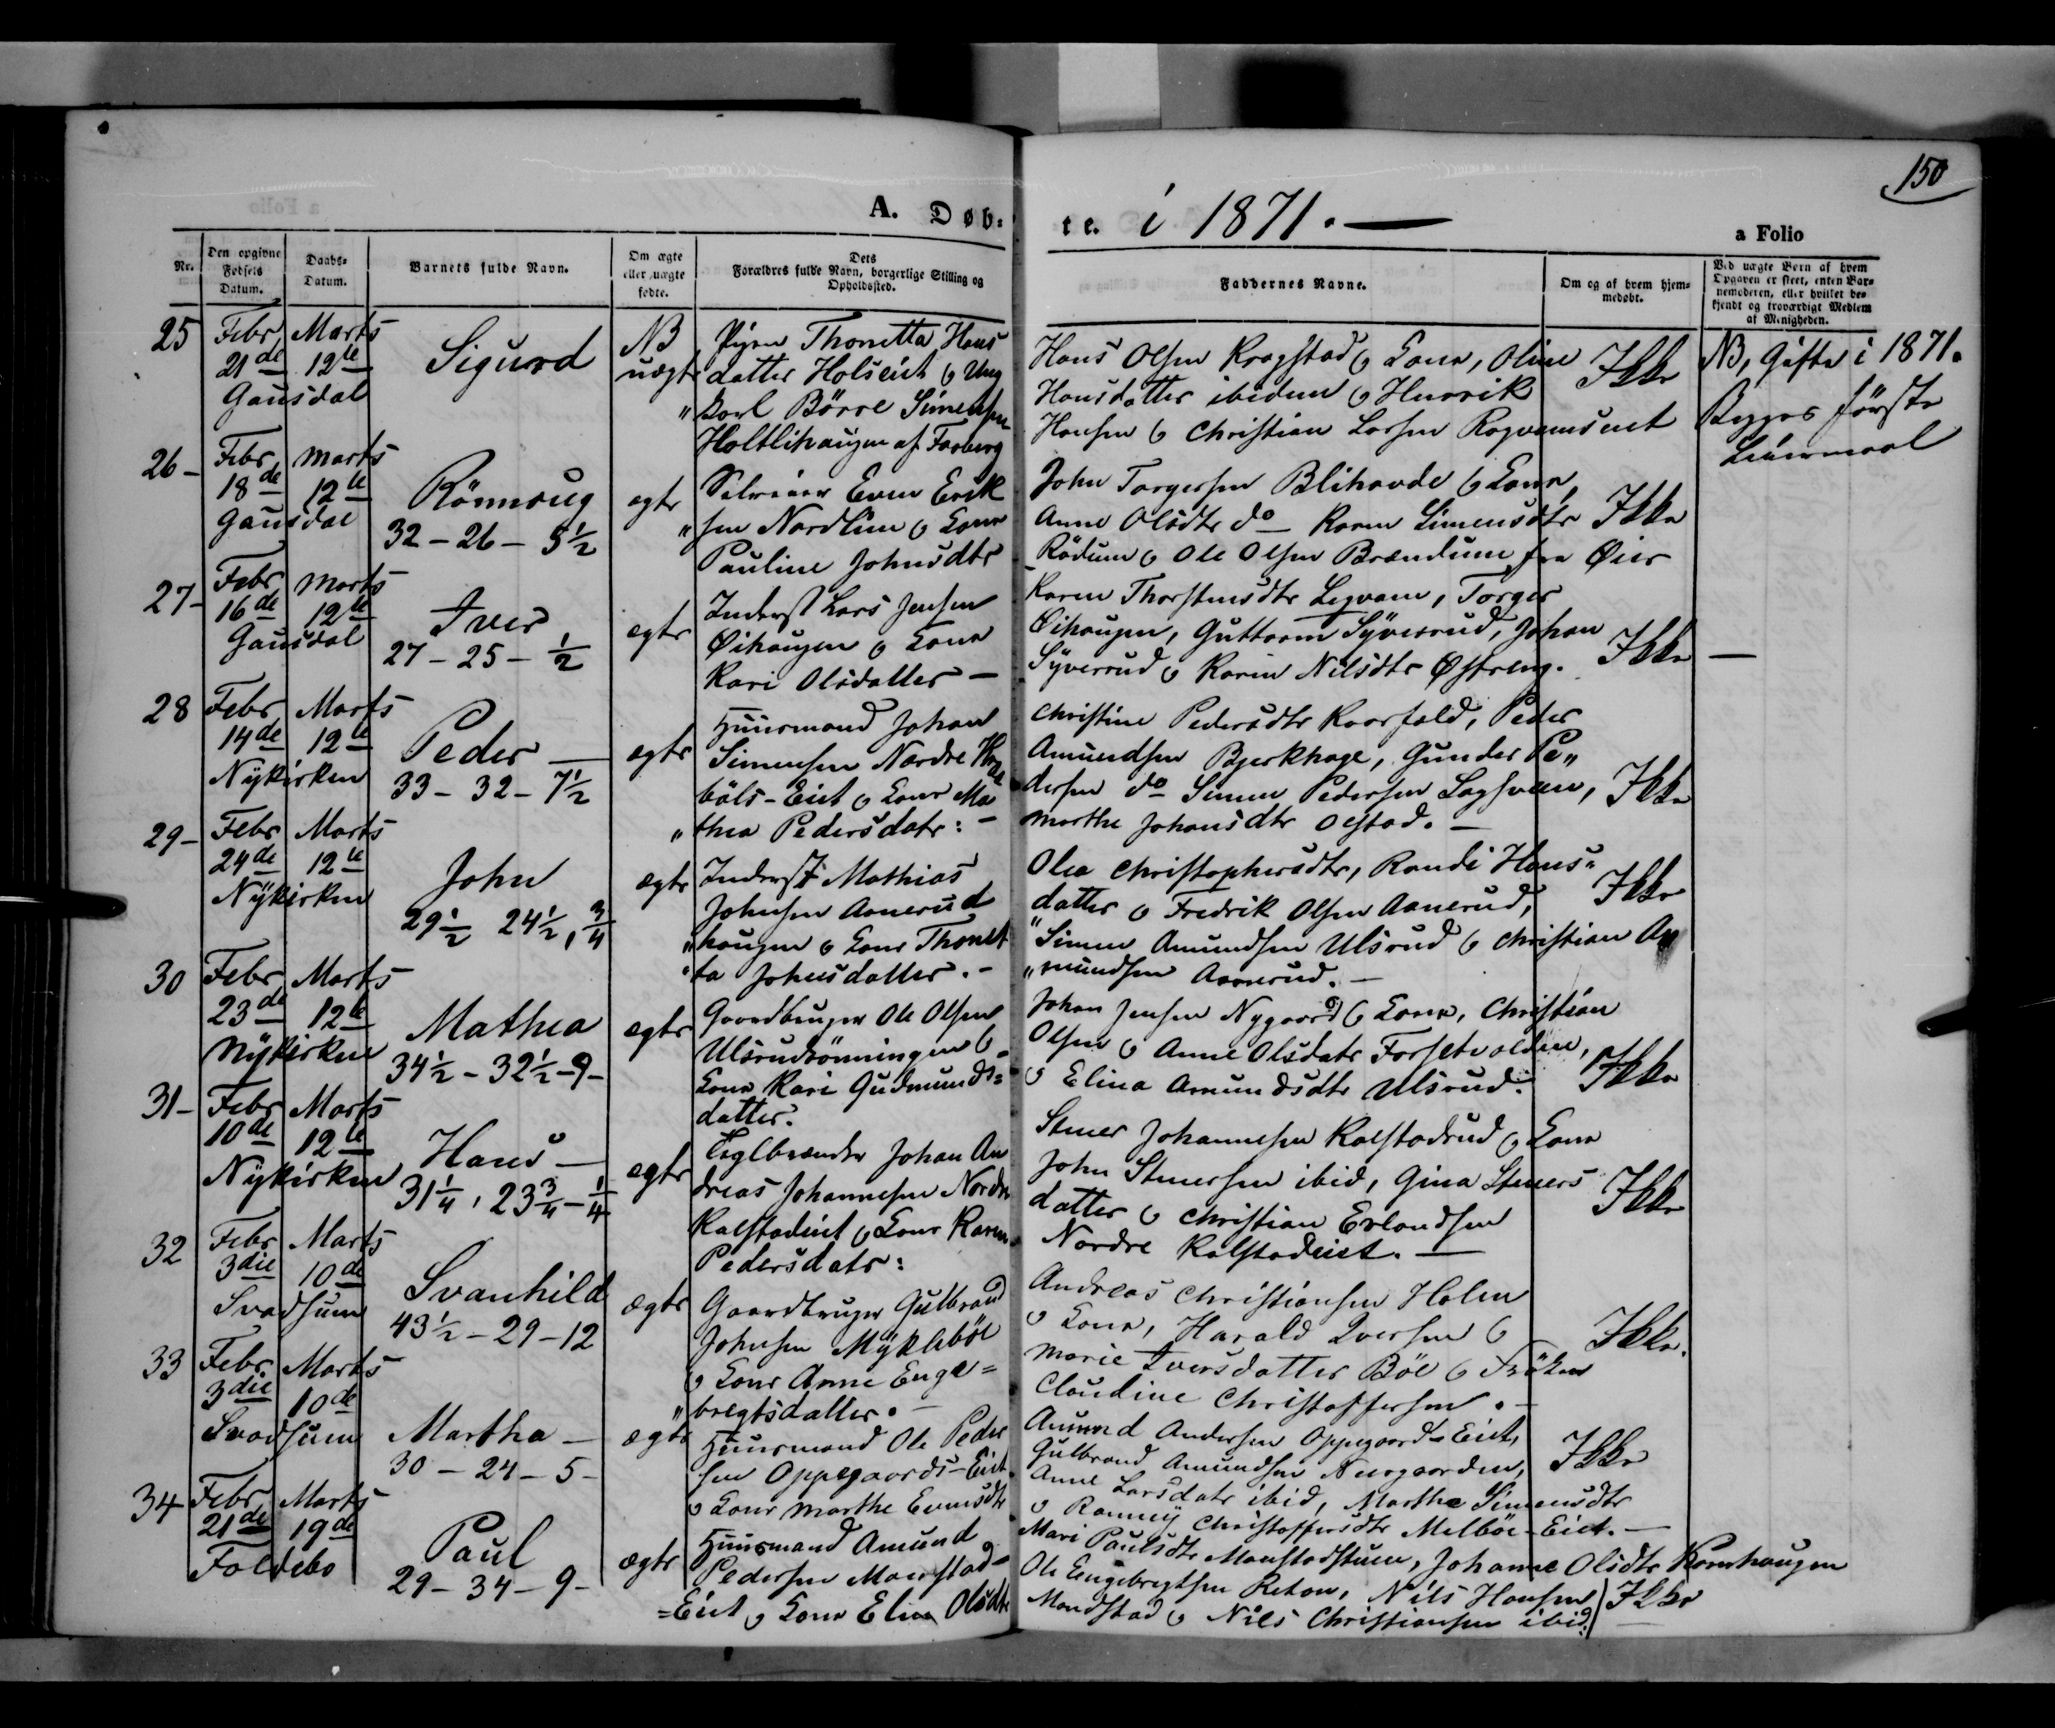 150
A. Døb-
te. i 1871. —
a Folio
Nr.
Den opgivne Fødsels Datum.
Daabs-Datum.
Barnets fulde Navn.
Om ægte eller uægte fødte.
Dets Forældres fulde Navn, borgerlige Stilling og Opholdssted.
Faddernes Navne.
Om og af hvem hjemmedøbt.
Ved uægte Børn af hvem Opgaven er skeet, enten Barnemoderen, eller hvilket bekjendt og troværdigt Medlem af Menigheden.
25 Febr 21de Marts 12te
Gausdal
Sigurd
NB uægte
Pigen Thonetta Hans
datter Holseiet & Ung
"karl Börre Simensen
Holtlihaugen af Faaberg
Hans Olsen Kragstad & Kone, Oline
Hansdatter ibidem & Henrik
Hansen & Christian Larsen
Ikke
NB, Gifte i 1871.
Begges første
Leiermaal
26 - Febr 18de Marts 12te
Gausdal
Rönnaug
32 - 26 - 5½
ægte
Selveier Even Erik
"sen Nordlien & Kone
Pauline Johnsdtr
John Torgersen Blihovde & Kone,
Anne Olsdtr do Karen Simensdtr
Rödum & Ole Olsen Brændum fra Øier
Ikke
27 - Febr 16de Marts 12te
Gausdal
Iver
27 - 25 - ½
ægte
Inderst Lars Jensen
Öihaugen & Kone
Kari Olsdatter —
Karen Thorstensdtr Legvam, Torger
Öihaugen, Guttorm Syverrud, Johan
Syverrud & Karin Nilsdtr Østreng.
Ikke —
28 Febr 14de Marts 12te
Nykirken
Peder —
33 - 32 - 7½
ægte
Huusmand Johan
Simensen Nordre
böls-Eiet & Kone Ma
"thea Pedersdatr: -
Christine Pedersdtr Kaarfald, Peder
Amundsen Bjerkhage, Gunder Pe"
dersen do Simen Pedersen
Marthe Johansdtr Olstad. —
Ikke
29 - Febr 24de Marts 12te
Nykirken
John
29½ 24½, ¾
ægte
Inderst Mathias
Johnsen Aanerud
"haugen & Kone Thonet
"ta Johnsdatter. -
Olea Christophersdtr, Randi Hans-
datter & Fredrik Olsen Aanerud,
"Simen Amundsen Ulsrud & Christian A
"mundsen Aanerud. —
Ikke
30 Febr 23de Marts 12te
Nykirken
Mathea
34½ - 32½ - 9 -
ægte
Gaardbruger Ole Olsen
Ulsrudrönningen &
Kone Kari Gudmunds=
datter.
Johan Jensen Nygaard & Kone, Christian
Olsen & Anne Olsdatr Forsetvolden,
& Elina Amundsdtr Ulsrud.
Ikke
31 - Febr 10de Marts 12te
Nykirken
Hans —
31¼, 23¾ - ¼
ægte
Teglbrænder Johan An
dreas Johannesen Nordre
Kalstadeiet & Kone Karen
Pedersdatr:
Stener Johannesen Kalstadrud & Kone
John Stenersen ibid, Gina Steners
datter & Christian Erlandsen
Nordre Kalstadeiet. —
Ikke
32 Febr 3die Marts 10de
Svadsum
Svanhild
43½ - 29 - 12
ægte
Gaardbruger Gulbrand
Johnsen Myklebøe
& Kone Anne Enge=
"bregtsdatter. —
Andreas Christiansen Holen
& Kone, Harald Iversen &
Marie Iversdatter Böe & Fröken
Claudine Christoffersen. —
Ikke.
33 Febr 3die Marts 10de
Svadsum
Martha —
30 - 24 - 5 -
ægte
Huusmand Ole Peder
sen Oppegaards-Eiet
& Kone Marthe Evensdtr
Amund Andersen Oppegaards Eiet,
Gulbrand Amundsen Nergaarden,
Anne Larsdatr ibid, Marthe Simensdtr
& Ranney Christoffersdtr Melböe-Eiet. —
Ikke
34 Febr 21de Marts 19de
Foldebo
Paul
29 - 34 - 9 -
ægte
Huusmand Amund
Pedersen Manstad-
=Eiet & Kone Eline Olsdtr
Mari Paulsdtr Manstadstuen, Johanne Olsdtr Kornhaugen
Ole Engebregtsen, Nils Hansen
Mandstad & Nils Christiansen ibid.
Ikke